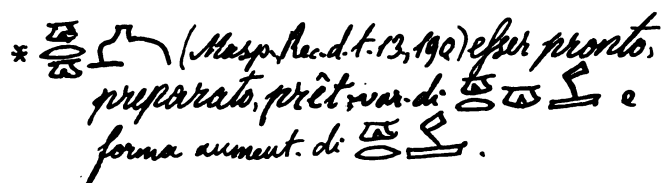 * (Masp. Rec. d. t. 13, 190) eſser pronto,
preparato, prêt, var. di e
forma aument. di .